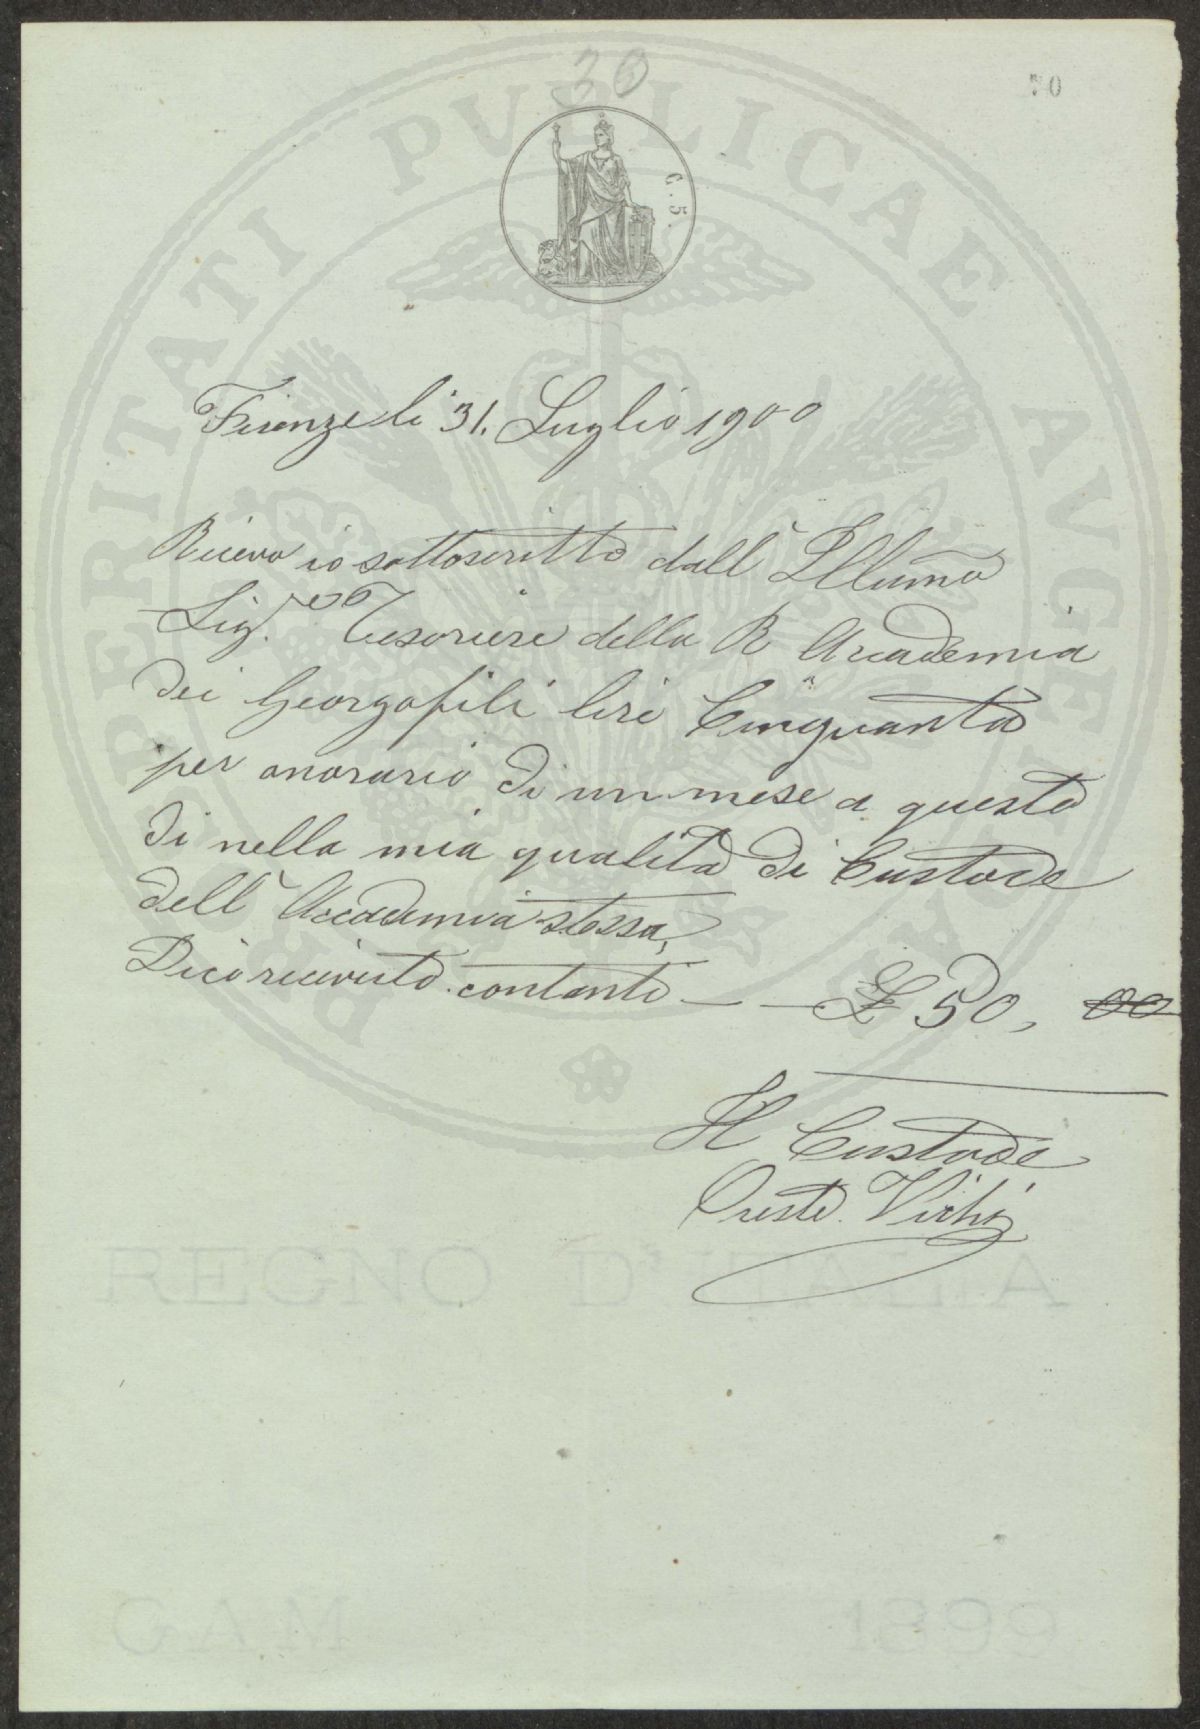 30
70
PROSPERITATI PUBLICAE AVGENDAE
C. 5.
Firenze li 31. Luglio 1900
Ricevo io sottoscritto dall' Illumo
Sig.re Tesoriere della R Accademia
dei Georgofili lire Cinquanta
per onorario di un mese a questo
di nella mia qualità di Custode
dell' Accademia stessa,
Dico ricevuto contanti — — £ 50, 00
Il Custode
Oreste Vichi
REGNO D'ITALIA
GAM 1899